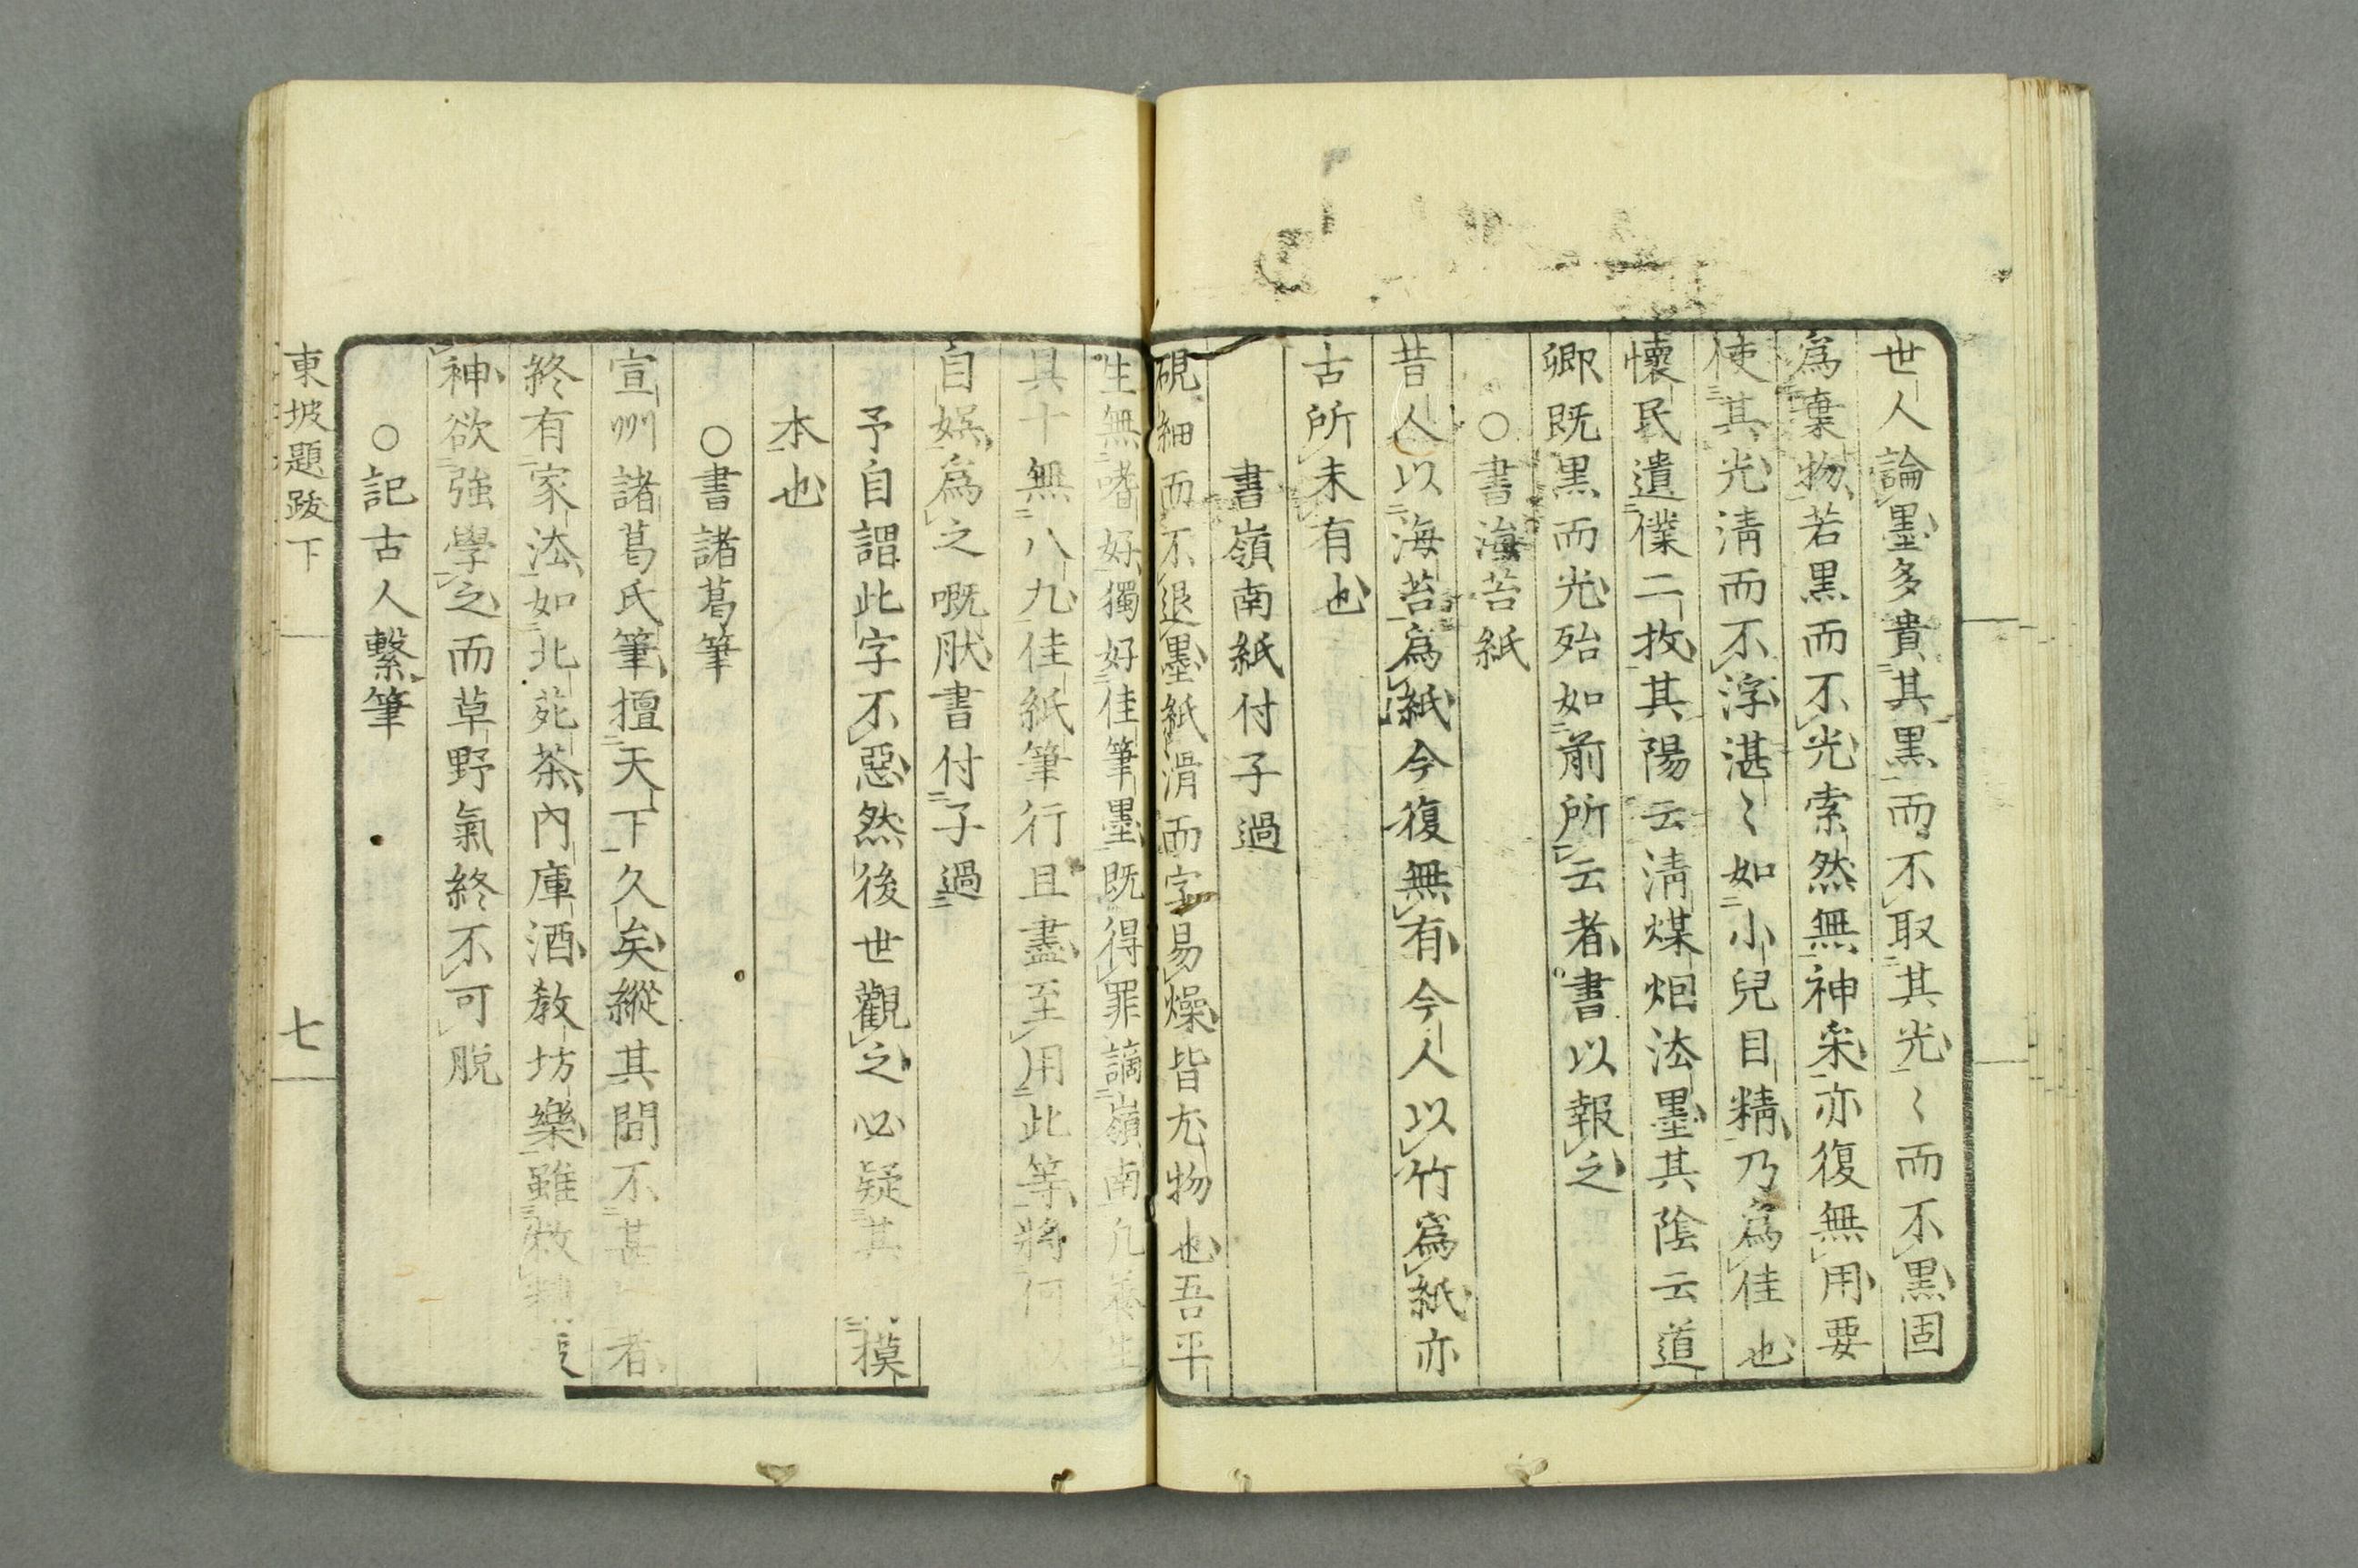 世人論墨多貴其黒而不取其光〻而不黒固
爲棄物若黒而不光索然無神采亦復無用要
使其光淸而不浮湛〻如小兒目精乃爲佳也
懷民遺僕二枚其陽云淸煤烟法墨其陰云道
卿既黒而光殆如前所云者書以報之
○書海苔紙
昔人以海苔爲紙今復無有今人以竹爲紙亦
古所未有也
書嶺南紙付子過
硯細而不退墨紙滑而字易燥皆尤物也吾平
生無嗜好獨好佳筆墨既得罪謫嶺南凡養生
具十無八九佳紙筆行且盡至用此等將何
自娯爲之嘅肰書付子過
予自謂此字不惡然後世觀之必疑其摸
本也
○書諸葛筆
宣州諸葛氏筆擅天下久矣縱其間不甚者
終有家法如北苑茶內庫酒敎坊樂雖敝精
神欲強學之而草野氣終不可脱
○記古人繫筆
東坡題跋下
七